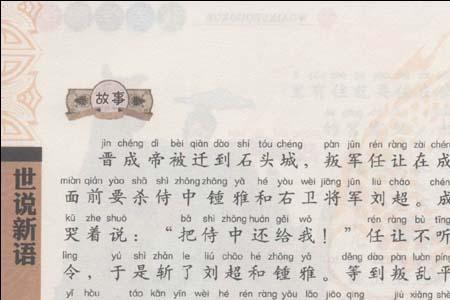 故事
jìn chéng dì bèi qiān dào shí tóu chéng pàn jūn rèn ràng zài chén
晋成帝被迁到石头城，叛军任让在成
miàn qián yào shā shì zhōng zhōng yǎ hé yòu wèi jiāng jūn liú chāo chén
面前要杀侍中锺雅和右卫将军刘超。成
kū zhe shuō bǎ shì zhōng huán gěi wǒ rèn ràng bù tīn
哭着说：“把侍中还给我！”任让不听
lìng yú shì zhǎn le liú chāo hé zhōng yǎ děng dào pàn luàn pín
令，于是斩了刘超和锺雅。等到叛乱平
yǐ hòu táo kǎn yīn wèi hé rèn ràng yǒu lǎo jiāo qing jiù xiǎng shè
世说新语